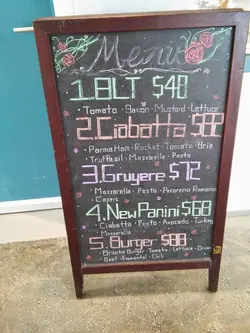 Menu
1.BLT $48
Tomato · Bacon · Mustard · Lettuce
2.Ciabatta $88
Parma Ham · Rocket · Tomato · Brie
Truffle oil · Mozzarella · Pesto
3.Gruyere $72
Mozzarella · Pesto · Pecorino Romano
Capers
4.New Panini $68
Ciabatta · Pesto · Avocado · Turkey
Mozzarella
5.Burger $88
Brioche Burger · Tomato · Lettuce · Onion
Beef · Emmental · Chili